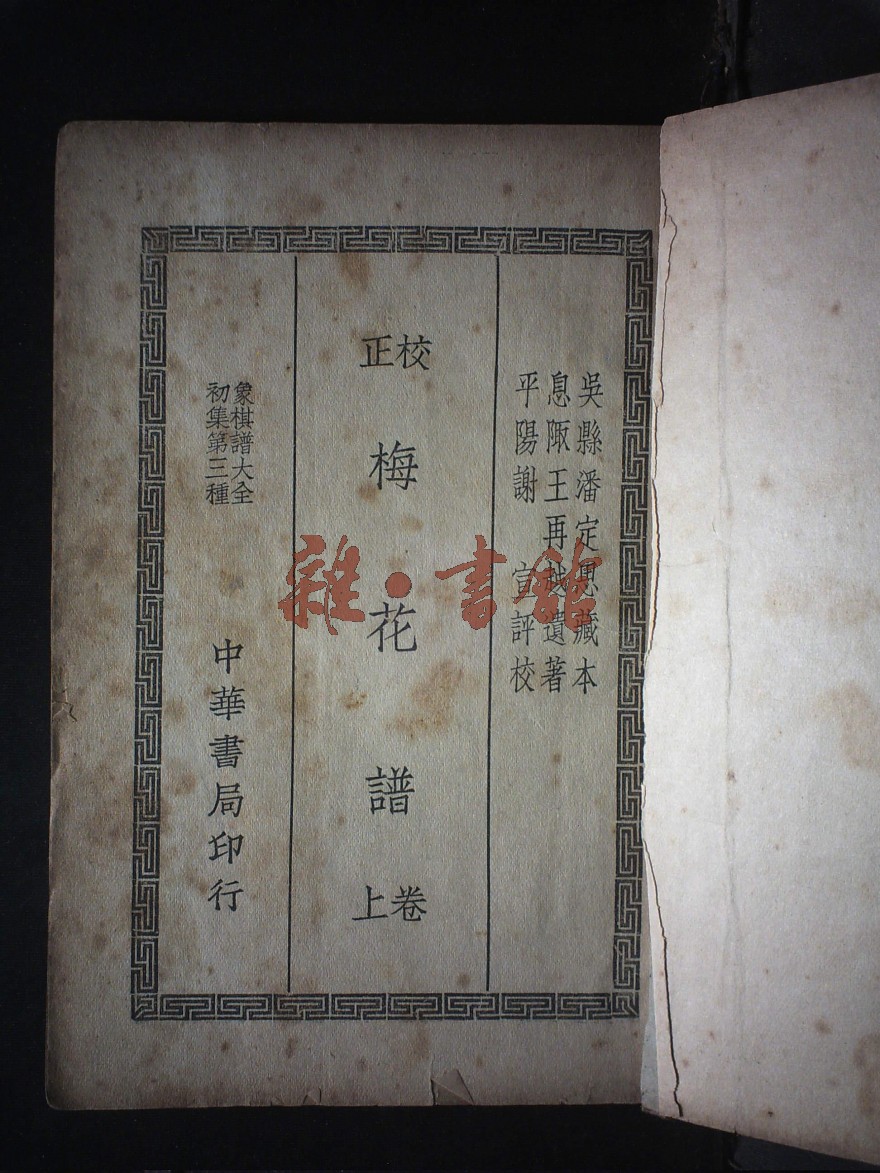 吳縣潘定思藏本
息陬王再越遺著
平陽謝 宣評校
校正
梅花譜
卷上
象棋譜大全
初集第三種
中華書局印行
雜·書館